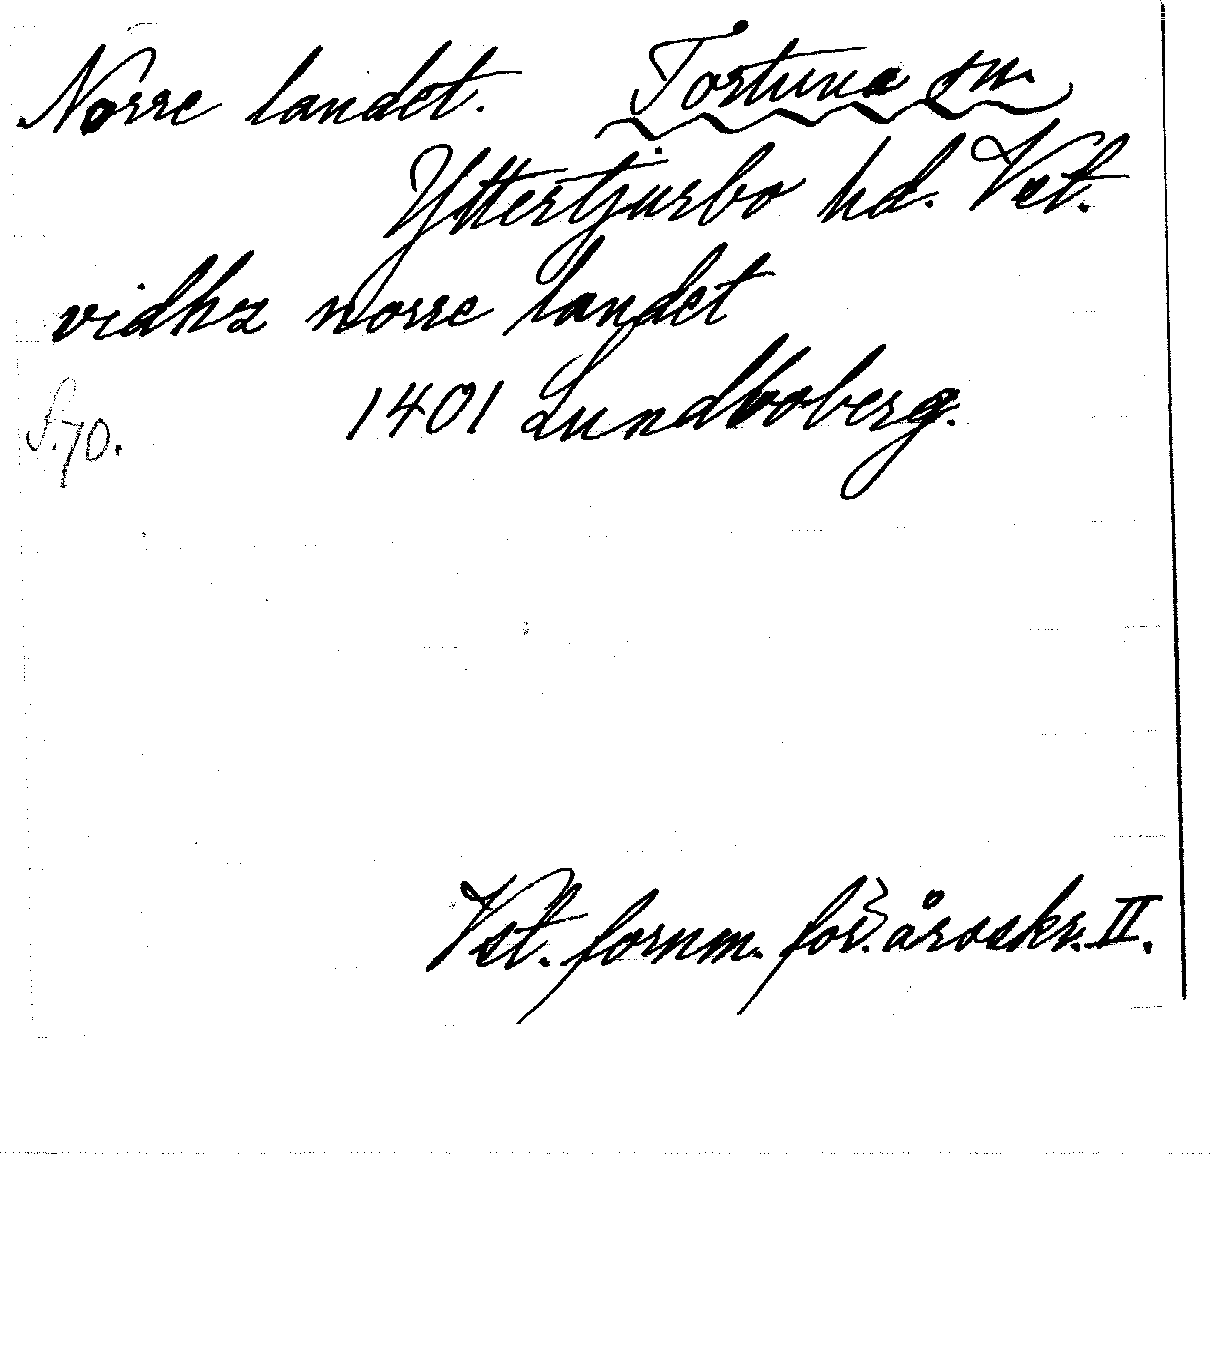 Norre landet. Tortuna sn.
Yttertjurbo hd. Vst.
vidhz norre landet
S. 70. 1401 Lundboberg.
Vst. fornm. för:s årsskr. II.